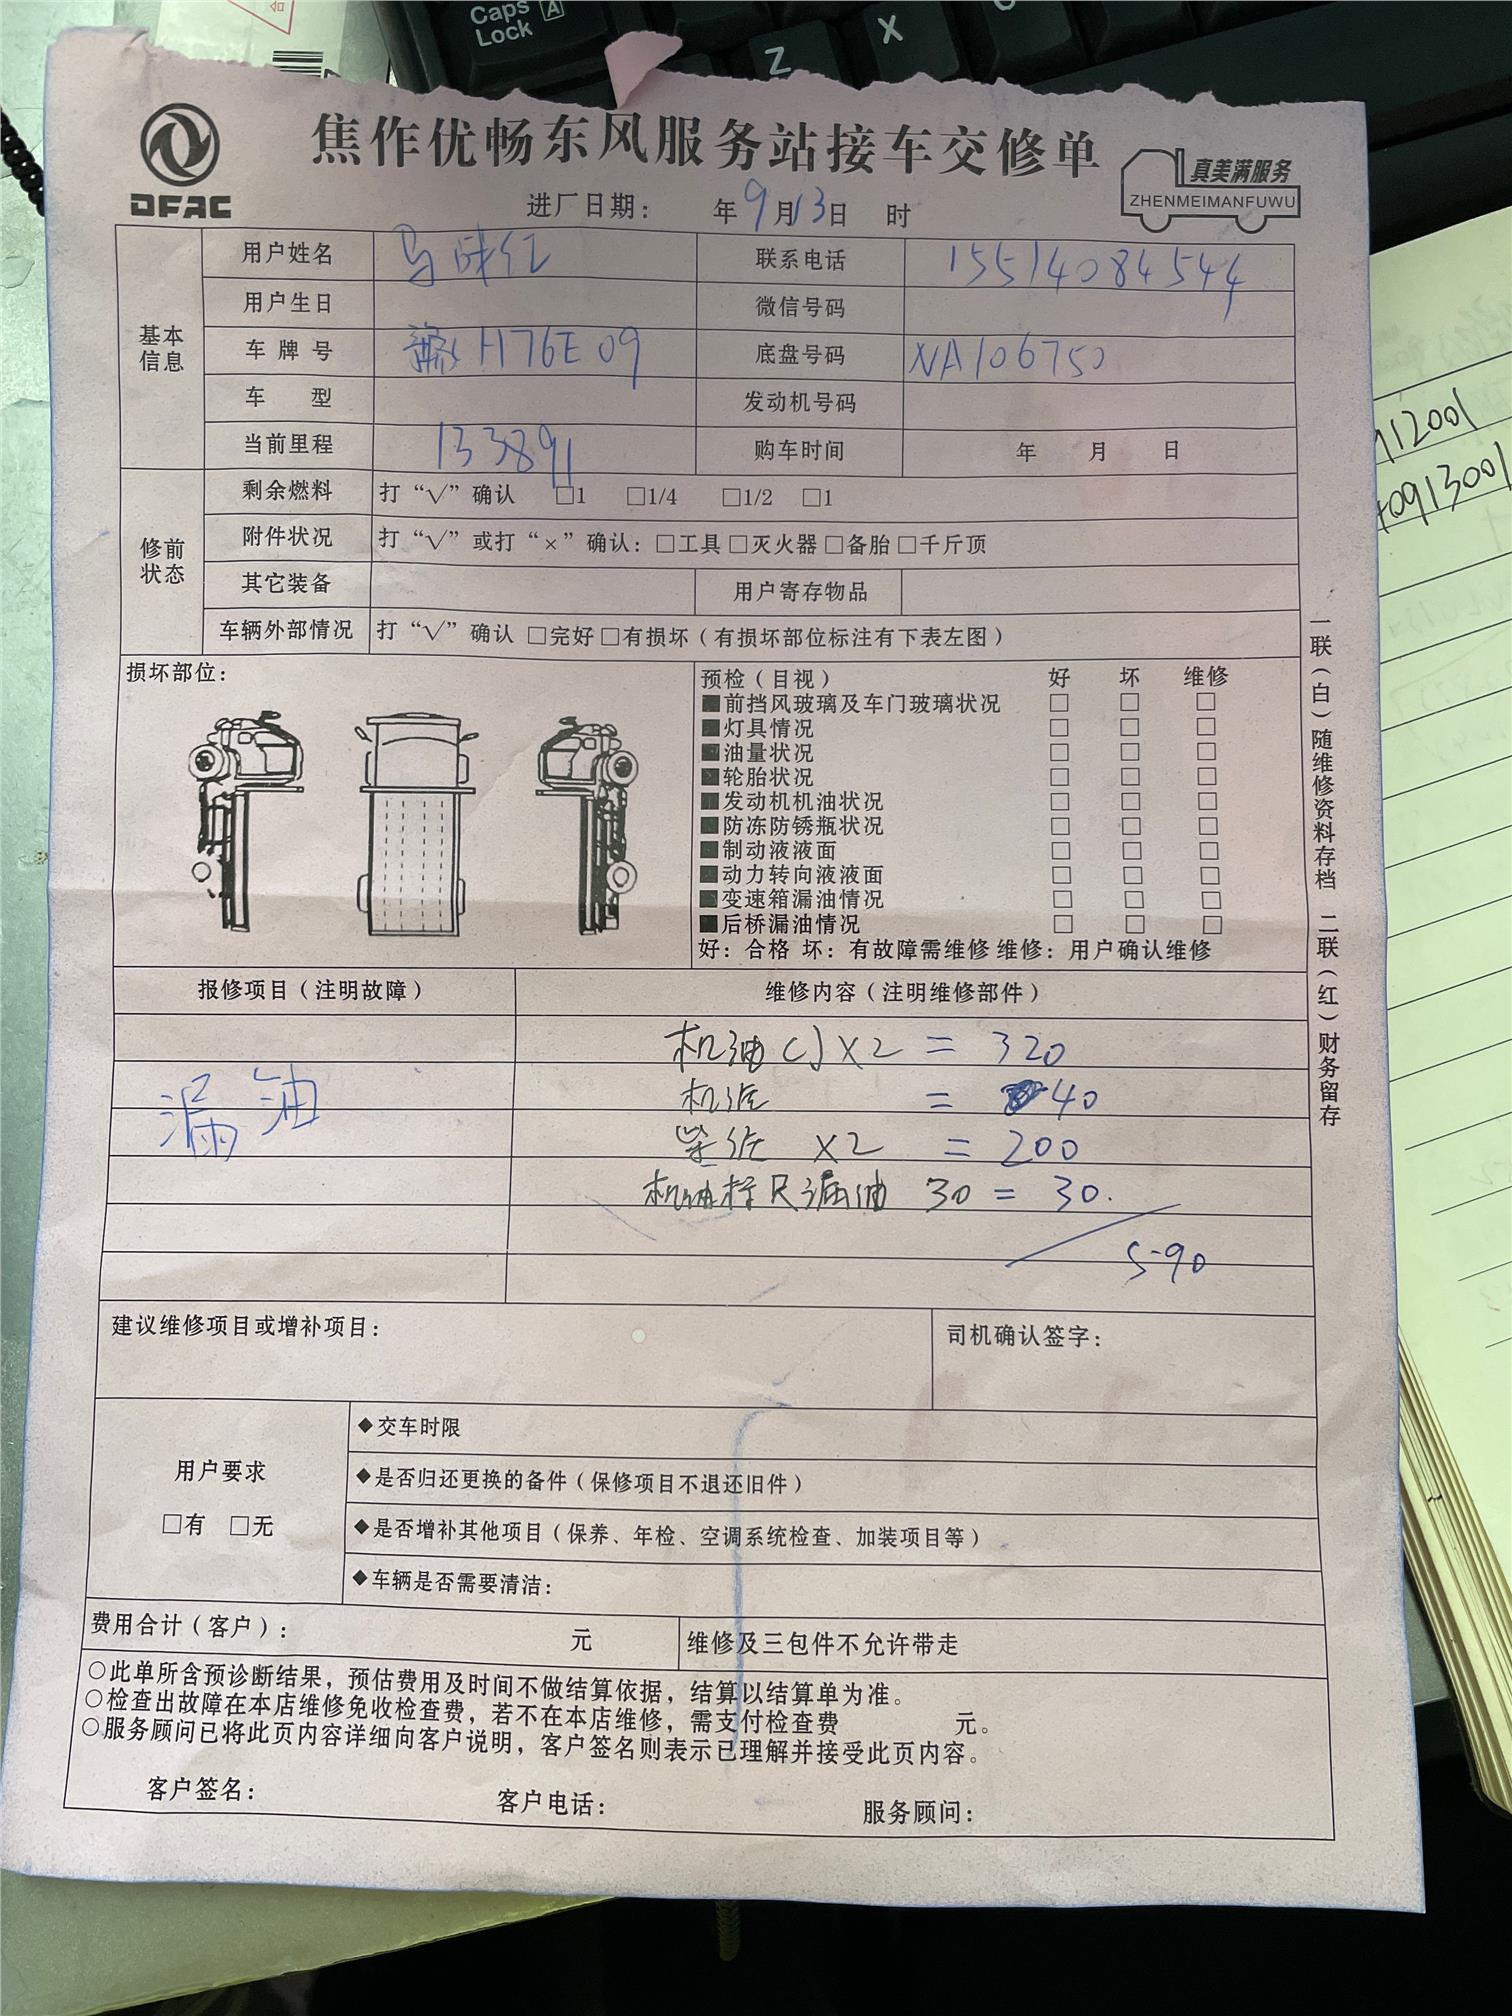 Caps Lock
A
Z
X
DFAC
焦作优畅东风服务站接车交修单
真美满服务
ZHENMEIMANFUWU
进厂日期： 年9月13日 时
基本信息
用户姓名 马 红 联系电话 15514084544
用户生日 微信号码
车牌号 豫H76E09 底盘号码 NA106750
车 型 发动机号码
当前里程 133891 购车时间 年 月 日
修前状态
剩余燃料 打“√”确认 □1 □1/4 □1/2 □1
附件状况 打“√”或打“×”确认：□工具□灭火器□备胎□千斤顶
其它装备 用户寄存物品
车辆外部情况 打“√”确认 □完好□有损坏（有损坏部位标注有下表左图）
损坏部位：
预检（目视） 好 坏 维修
■前挡风玻璃及车门玻璃状况 □ □ □
■灯具情况 □ □ □
■油量状况 □ □ □
■轮胎状况 □ □ □
■发动机机油状况 □ □ □
■防冻防锈瓶状况 □ □ □
■制动液液面 □ □ □
■动力转向液液面 □ □ □
■变速箱漏油情况 □ □ □
■后桥漏油情况 □ □ □
好：合格 坏：有故障需维修 维修：用户确认维修
报修项目（注明故障） 维修内容（注明维修部件）
漏油
机油 ×2 = 320
机滤 = 40
柴滤 ×2 = 200
机油标尺漏油 30 = 30.
590
建议维修项目或增补项目：
司机确认签字：
用户要求
□有 □无
◆交车时限
◆是否归还更换的备件（保修项目不退还旧件）
◆是否增补其他项目（保养、年检、空调系统检查、加装项目等）
◆车辆是否需要清洁：
费用合计（客户）： 元 维修及三包件不允许带走
○此单所含预诊断结果，预估费用及时间不做结算依据，结算以结算单为准。
○检查出故障在本店维修免收检查费，若不在本店维修，需支付检查费 元。
○服务顾问已将此页内容详细向客户说明，客户签名则表示已理解并接受此页内容。
客户签名： 客户电话： 服务顾问：
一联（白）随维修资料存档 二联（红）财务留存
12001
0913001